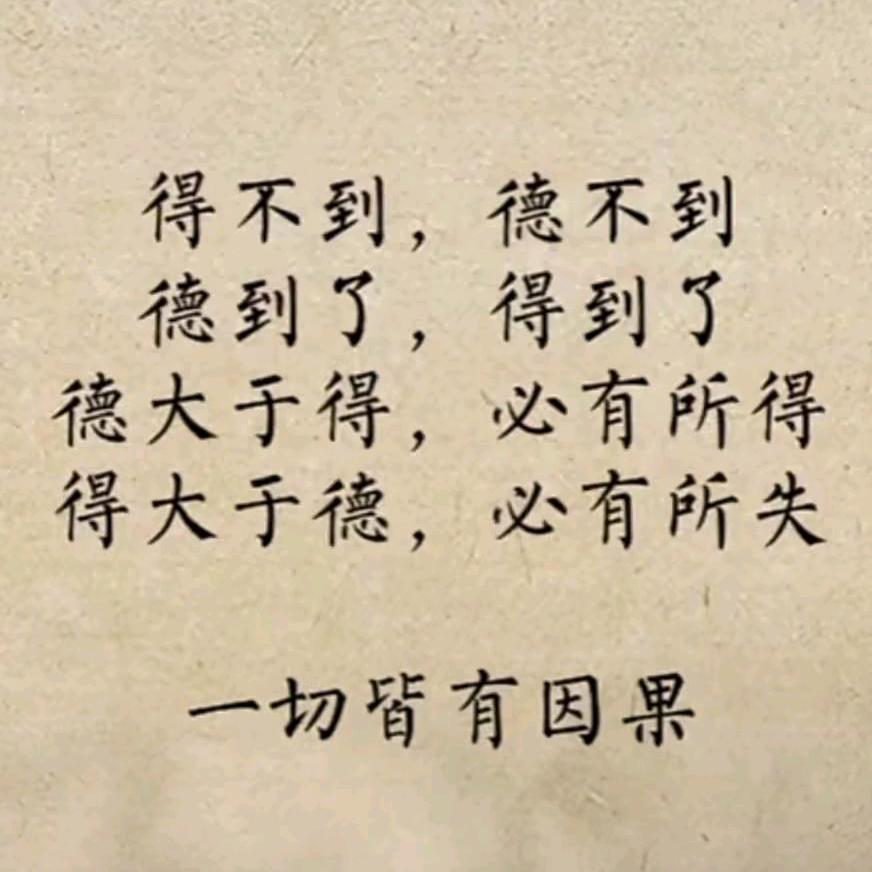 得不到，德不到
德到了，得到了
德大于得，必有所得
得大于德，必有所失
一切皆有因果